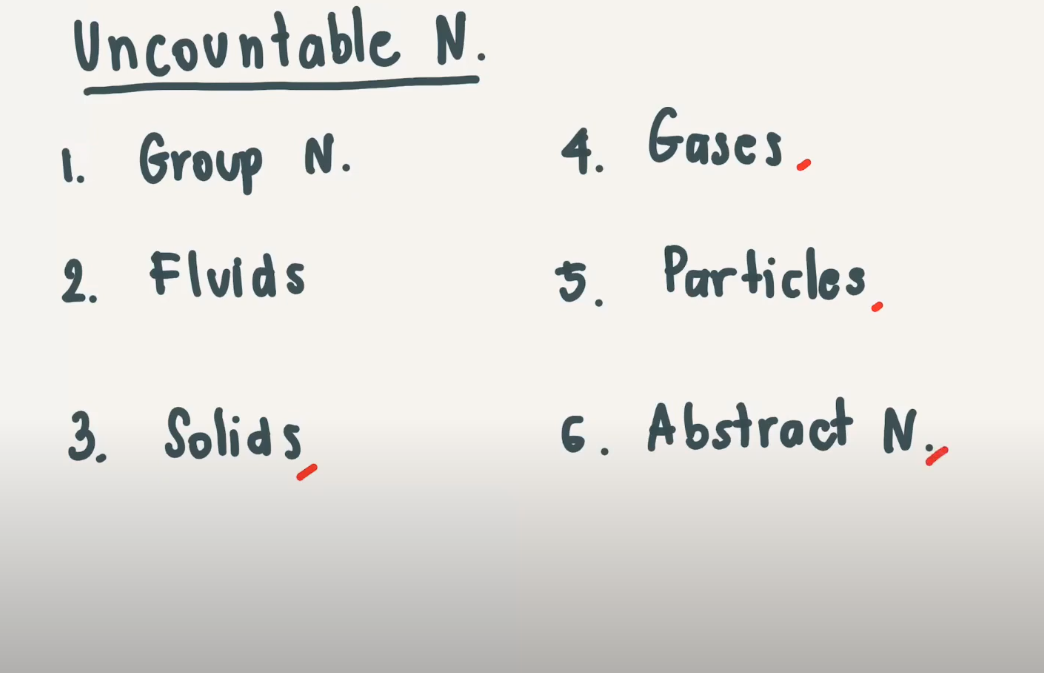 Uncountable N.
1. Group N.
2. Fluids
3. Solids
4. Gases
5. Particles
6. Abstract N.